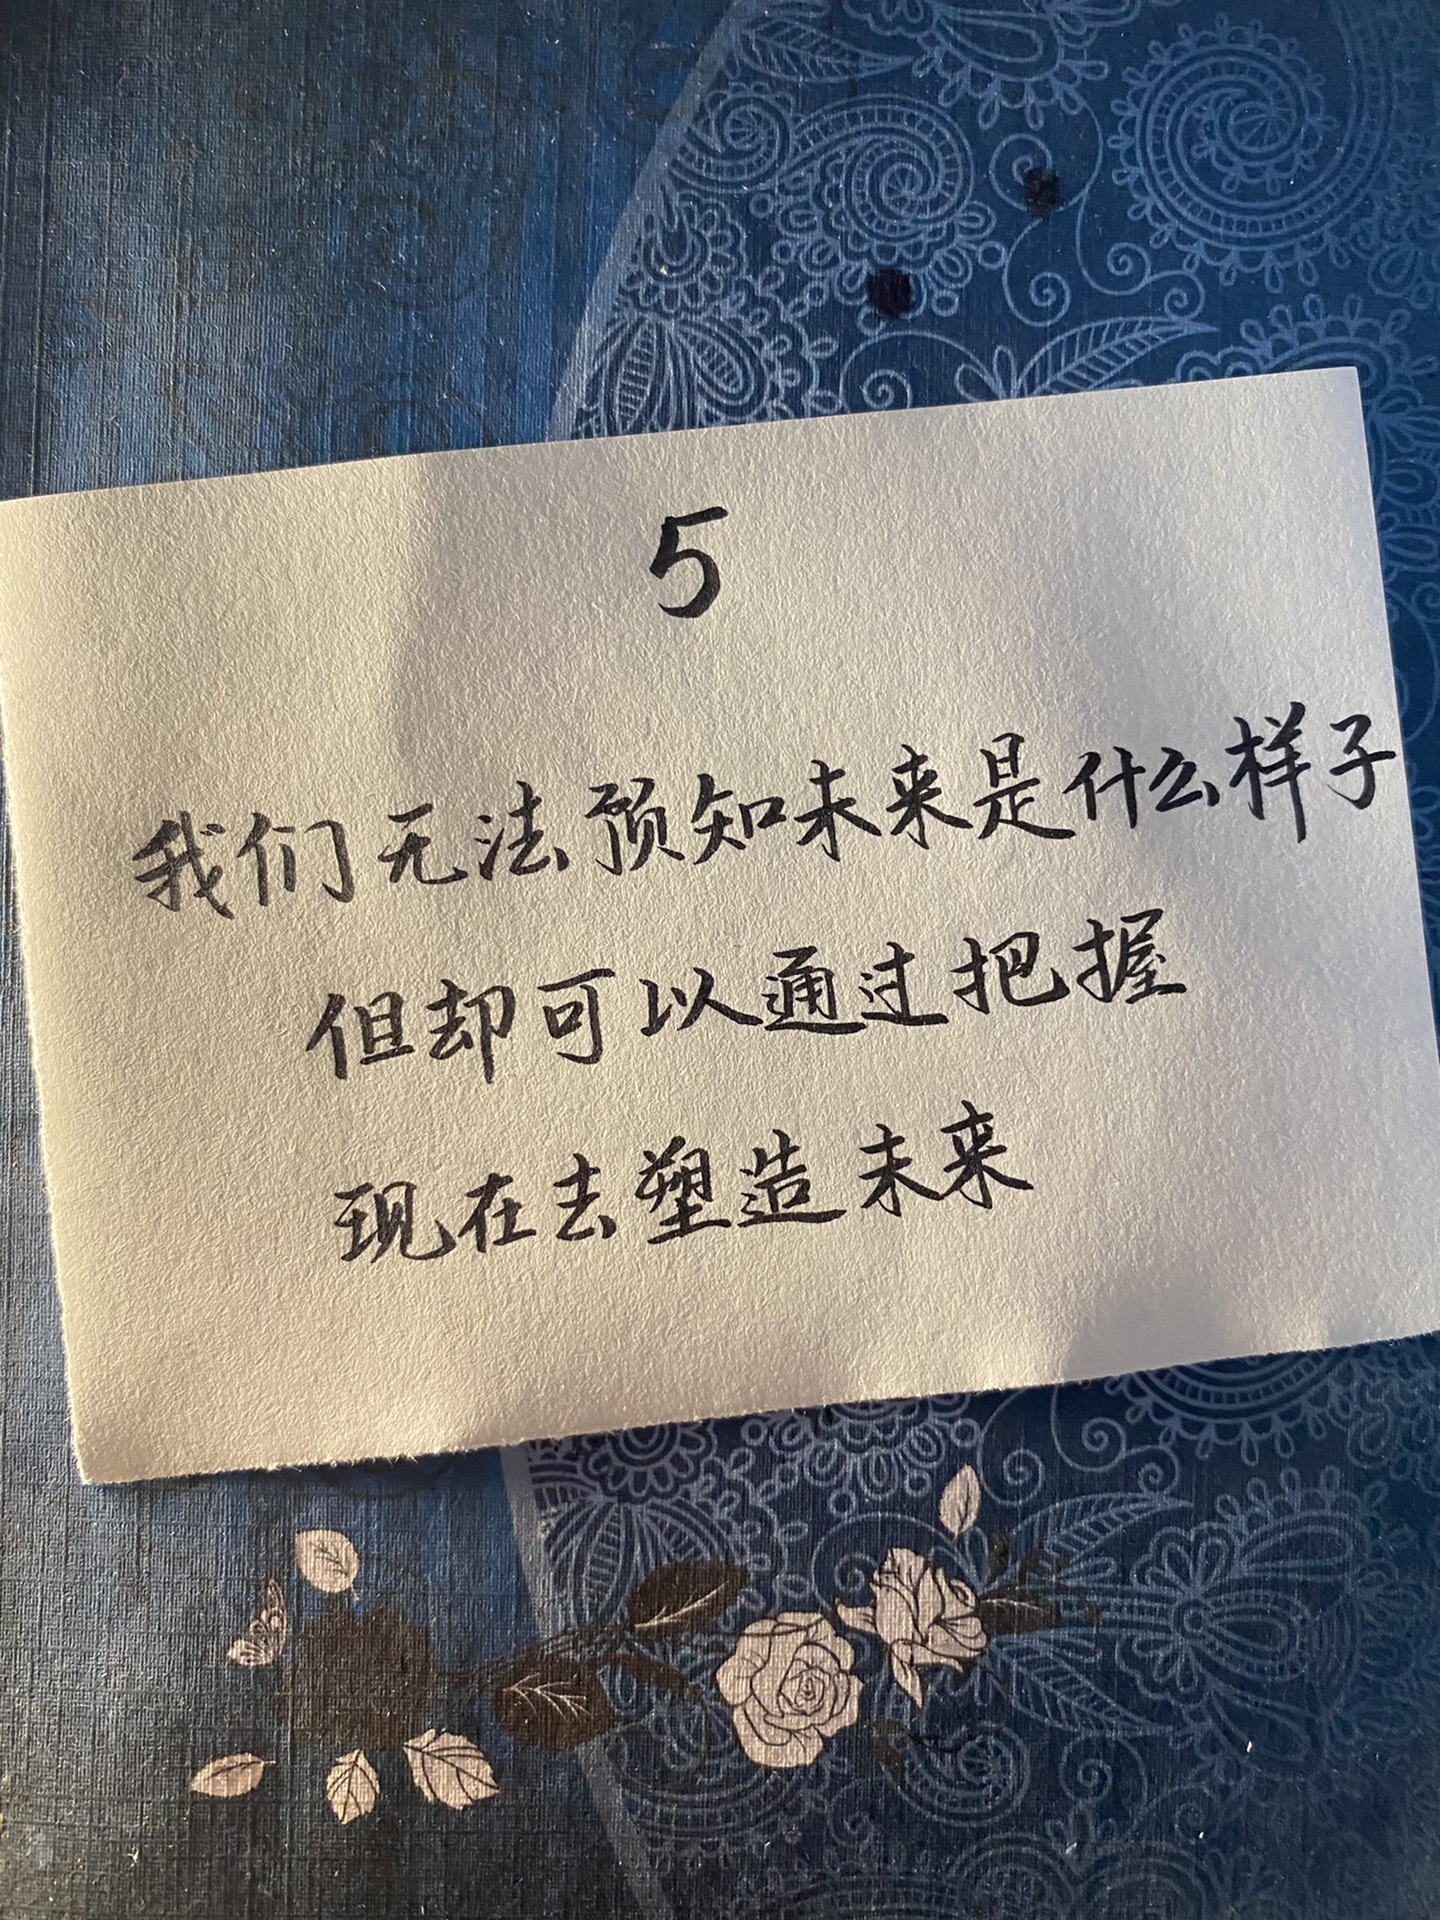 5
我们无法预知未来是什么样子
但却可以通过把握
现在去塑造未来